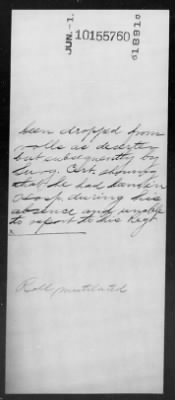 JUN. -1.
10155760
1891
been dropped from
rolls as deserter
but subsequently by
Surg. Cert. showing
that he had been in
Hosp. during his
absence and unable
to report to his Regt.
Roll mutilated